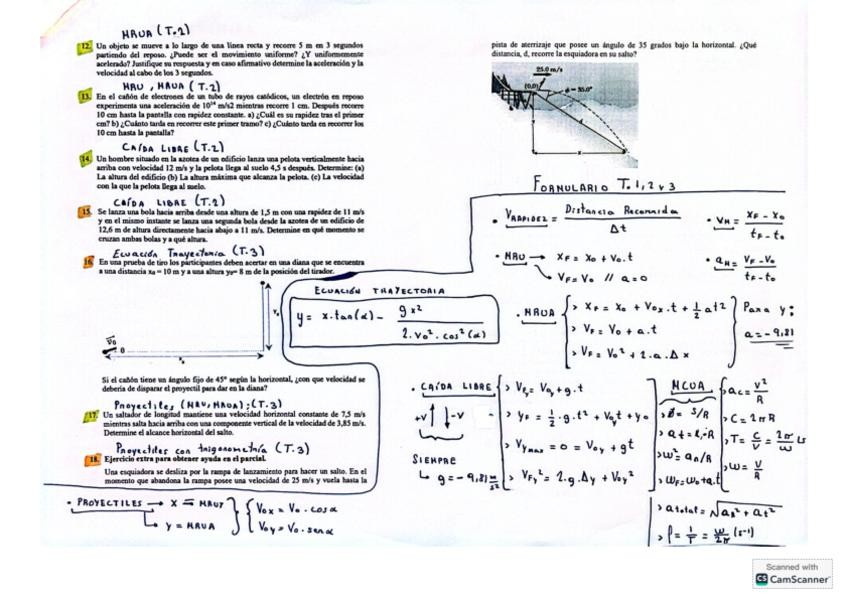 MRUA (T.2)
12. Un objeto se mueve a lo largo de una línea recta y recorre 5 m en 3 segundos
partiendo del reposo. ¿Puede ser el movimiento uniforme? ¿Y uniformemente
acelerado? Justifique su respuesta y en caso afirmativo determine la aceleración y la
velocidad al cabo de los 3 segundos.
MRU, MRUA (T.2)
13. En el cañón de electrones de un tubo de rayos catódicos, un electrón en reposo
experimenta una aceleración de 10¹⁴ m/s2 mientras recorre 1 cm. Después recorre
10 cm hasta la pantalla con rapidez constante. a) ¿Cuál es su rapidez tras el primer
cm? b) ¿Cuánto tarda en recorrer este primer tramo? c) ¿Cuánto tarda en recorrer los
10 cm hasta la pantalla?
CAÍDA LIBRE (T.2)
14. Un hombre situado en la azotea de un edificio lanza una pelota verticalmente hacia
arriba con velocidad 12 m/s y la pelota llega al suelo 4,5 s después. Determine: (a)
La altura del edificio (b) La altura máxima que alcanza la pelota. (c) La velocidad
con la que la pelota llega al suelo.
CAÍDA LIBRE (T.2)
15. Se lanza una bola hacia arriba desde una altura de 1,5 m con una rapidez de 11 m/s
y en el mismo instante se lanza una segunda bola desde la azotea de un edificio de
12,6 m de altura directamente hacia abajo a 11 m/s. Determine en qué momento se
cruzan ambas bolas y a qué altura.
Ecuación Trayectoria (T.3)
16. En una prueba de tiro los participantes deben acertar en una diana que se encuentra
a una distancia x₀ = 10 m y a una altura y₀= 8 m de la posición del tirador.
V₀
θ
Si el cañón tiene un ángulo fijo de 45° según la horizontal, ¿con que velocidad se
debería de disparar el proyectil para dar en la diana?
Proyectiles (MRU, MRUA); (T.3)
17. Un saltador de longitud mantiene una velocidad horizontal constante de 7,5 m/s
mientras salta hacia arriba con una componente vertical de la velocidad de 3,85 m/s.
Determine el alcance horizontal del salto.
Proyectiles con trigonometría (T.3)
18. Ejercicio extra para obtener ayuda en el parcial.
Una esquiadora se desliza por la rampa de lanzamiento para hacer un salto. En el
momento que abandona la rampa posee una velocidad de 25 m/s y vuela hasta la
• PROYECTILES → X = MRU
↳ Y = MRUA
V₀x = V₀ · cosα
V₀y = V₀ · senα
pista de aterrizaje que posee un ángulo de 35 grados bajo la horizontal. ¿Qué
distancia, d, recorre la esquiadora en su salto?
25.0 m/s
(0,0)
ϕ = 35.0°
d
y
x
FORMULARIO T. 1, 2 y 3
• VRAPIDEZ = Distancia Recorrida / Δt
• VM = (XF - X₀) / (tF - t₀)
• MRU → XF = X₀ + V₀.t
↘ VF = V₀ // a = 0
• aM = (VF - V₀) / (tF - t₀)
ECUACIÓN TRAYECTORIA
y = x.tan(α) - gx² / 2.V₀².cos²(α)
• MRUA
> XF = X₀ + V₀x.t + ½at²
> VF = V₀ + a.t
> VF = V₀² + 2.a.Δx
Para y:
a = -9,81
• CAÍDA LIBRE
+V -V
SIEMPRE
↳ g = -9,81 m/s²
> VFy = V₀y + g.t
> yF = ½.g.t² + V₀yt + y₀
> Vymax = 0 = V₀y + gt
> VFy² = 2.g.Δy + V₀y²
MCUA
> ϕ = S/R
> w² = an/R
> wF = w₀ + α.t
> ac = V²/R
> C = 2πR
> T = C/V = 2π/w
> w = V/R
> a total = √an² + at²
> f = 1/T = w/2π (s⁻¹)
Scanned with
CS CamScanner